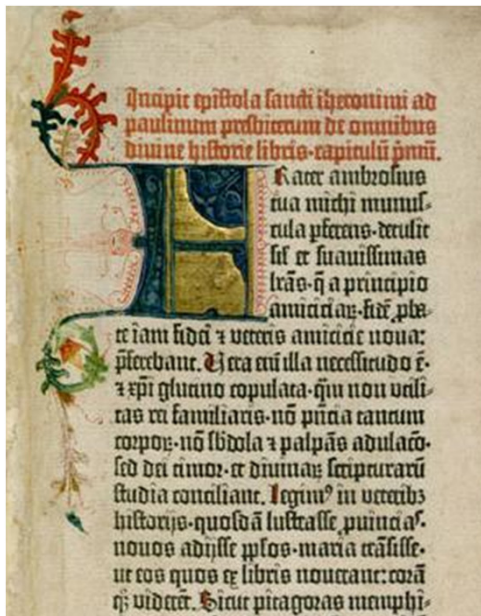 Incipit epistola sancti iheronimi ad
paulinum presbiterum de omnibus
divine historie libris·capitulū p̄mū.
Frater ambrosius
tua michi munus-
cula pferens·detulit
sil et suavissimas
lrās·q̄ a principio
amicicia⁊·fidē pba-
te iam fidei ⁊ veteris amicicie nova:
pferebant. Vera eni illa necessitudo ē·
⁊ xpi glutino copulata·qm non utili-
tas rei familiaris·nō pn̄cia tantum
corpoꝝ·nō sbdola ⁊ palpās adulacō·
sed dei timor·et divinaꝝ scripturarū
studia conciliant. Legimꝰ in veteribꝫ
historijs·quosdā lustrasse pvincias·
novos adijsse pplos·maria trāsisse·
ut eos quos ex libris noverant: corā
qꝫ viderēt. Sicut pitagoras memphi-